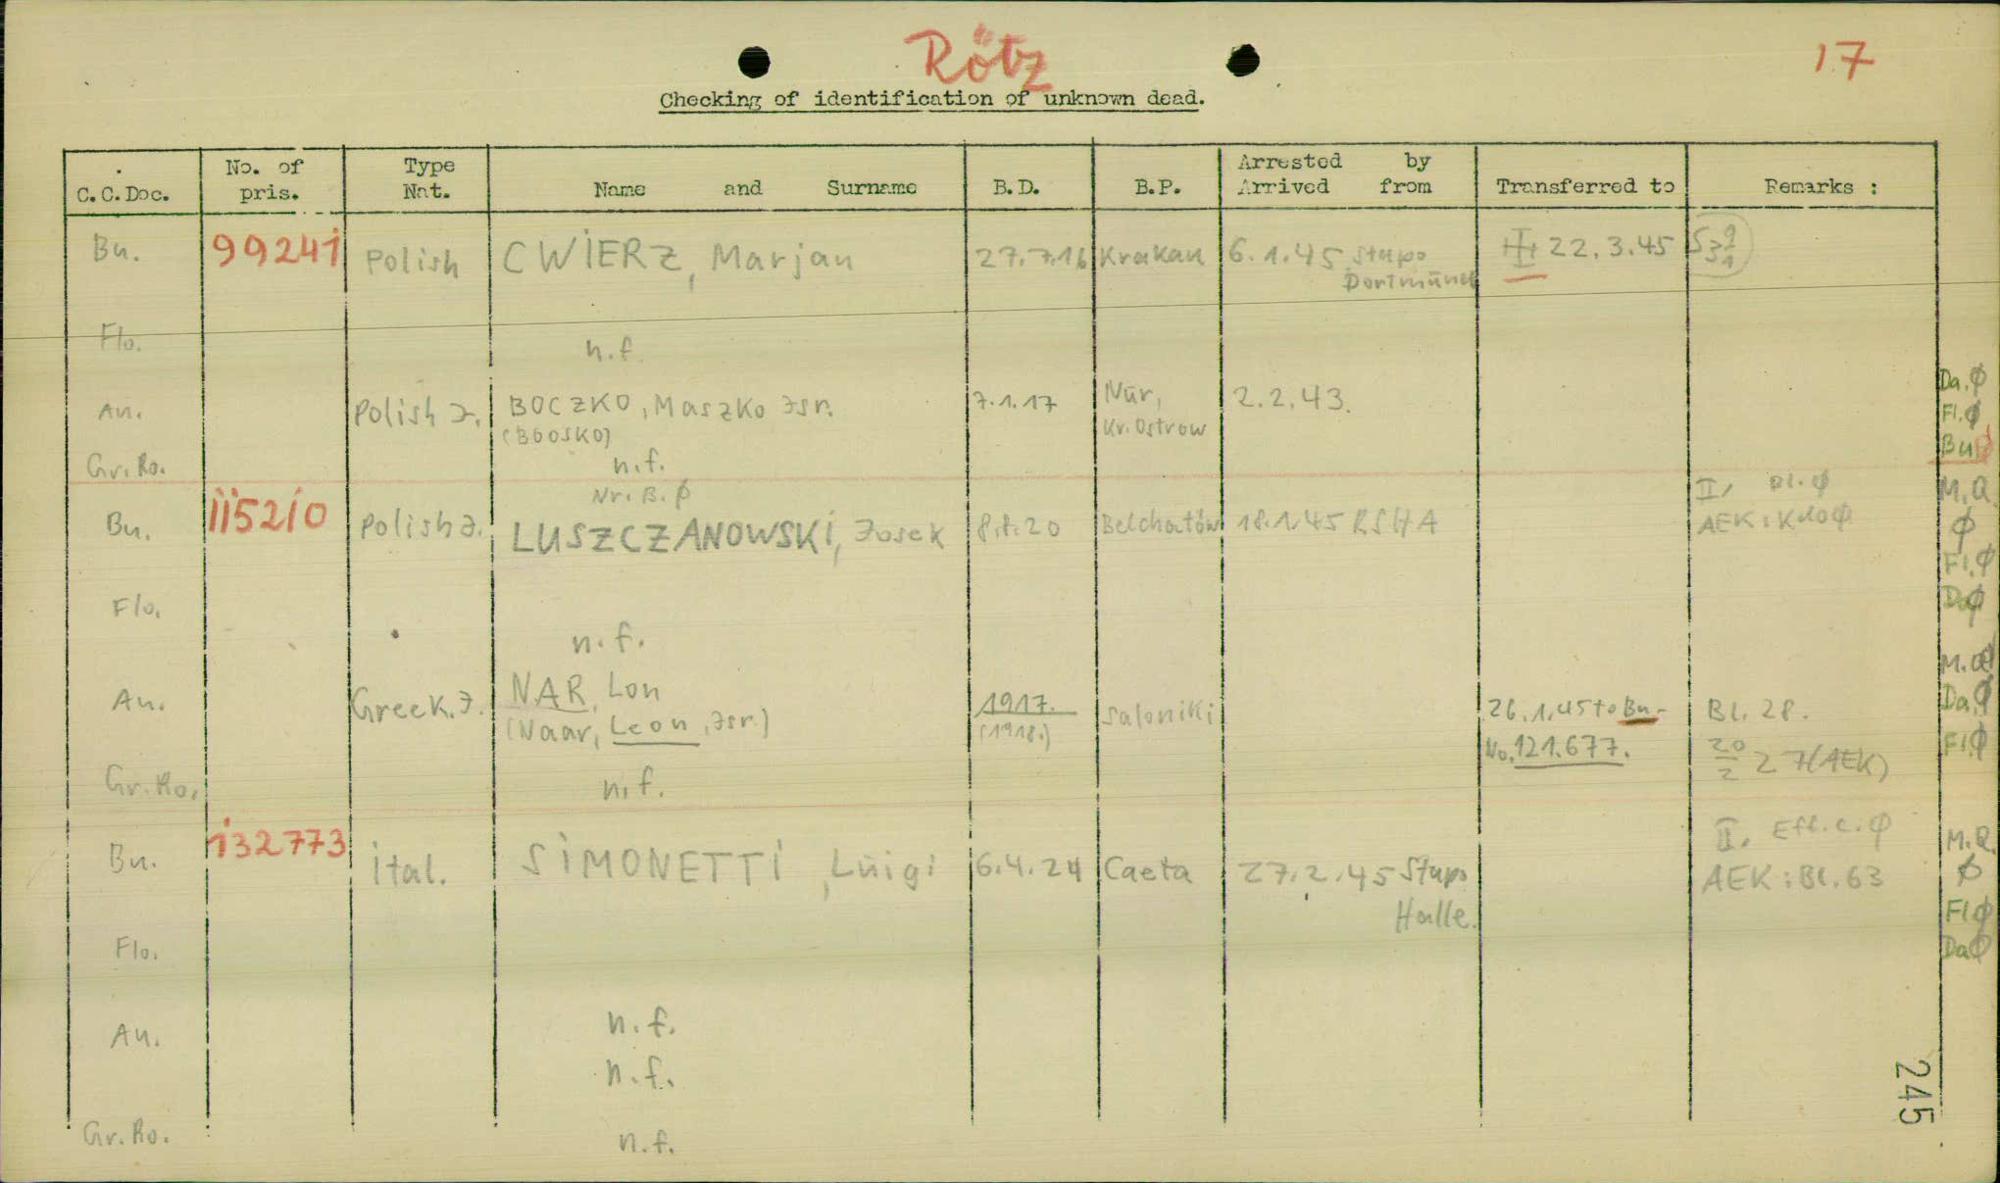 Rötz
17
Checking of identification of unknown dead.
C.C.Doc. No. of pris. Type Nat. Name and Surname B.D. B.P. Arrested by Arrived from Transferred to Remarks :
Bu. 99241 Polish CWIERZ, Marjan 27.7.16 Krakau 6.1.45 Stapo Dortmund 22.3.45
Flo. n.f.
Au. Polish J. BOCZKO, Maszko Isr. 7.1.17 Nur, Kr. Ostrow 2.2.43.
Da. Ø
Fl. Ø
Bu
Gr.Ro. n.f.
Nr. B. Ø
II, Bl. Ø
M.Q.
Bu. 115210 Polish J. LUSZCZANOWSKI, Josek 20 Belchatów 18.1.45 RSHA AEK:
Ø
Fl. Ø
Flo.
n.f.
M.Q
Au. Greek. J. NAR, Lon 1917. Saloniki 26.1.45 to Bu- Bl. 28.
Da. Ø
(Naar, Leon, Isr.) (1918.) No. 121.677. 20/2 27 (AEK)
Fl. Ø
Gr.Ro. n.f.
II. Eff.c. Ø
M.Q.
Bu. 132773 Ital. SIMONETTI, Luigi 6.4.24 Caeta 27.2.45 Stapo AEK: Bl. 63
Ø
Halle.
Fl Ø
Flo.
Da Ø
n.f.
Au.
n.f.
Gr.Ro. n.f.
245